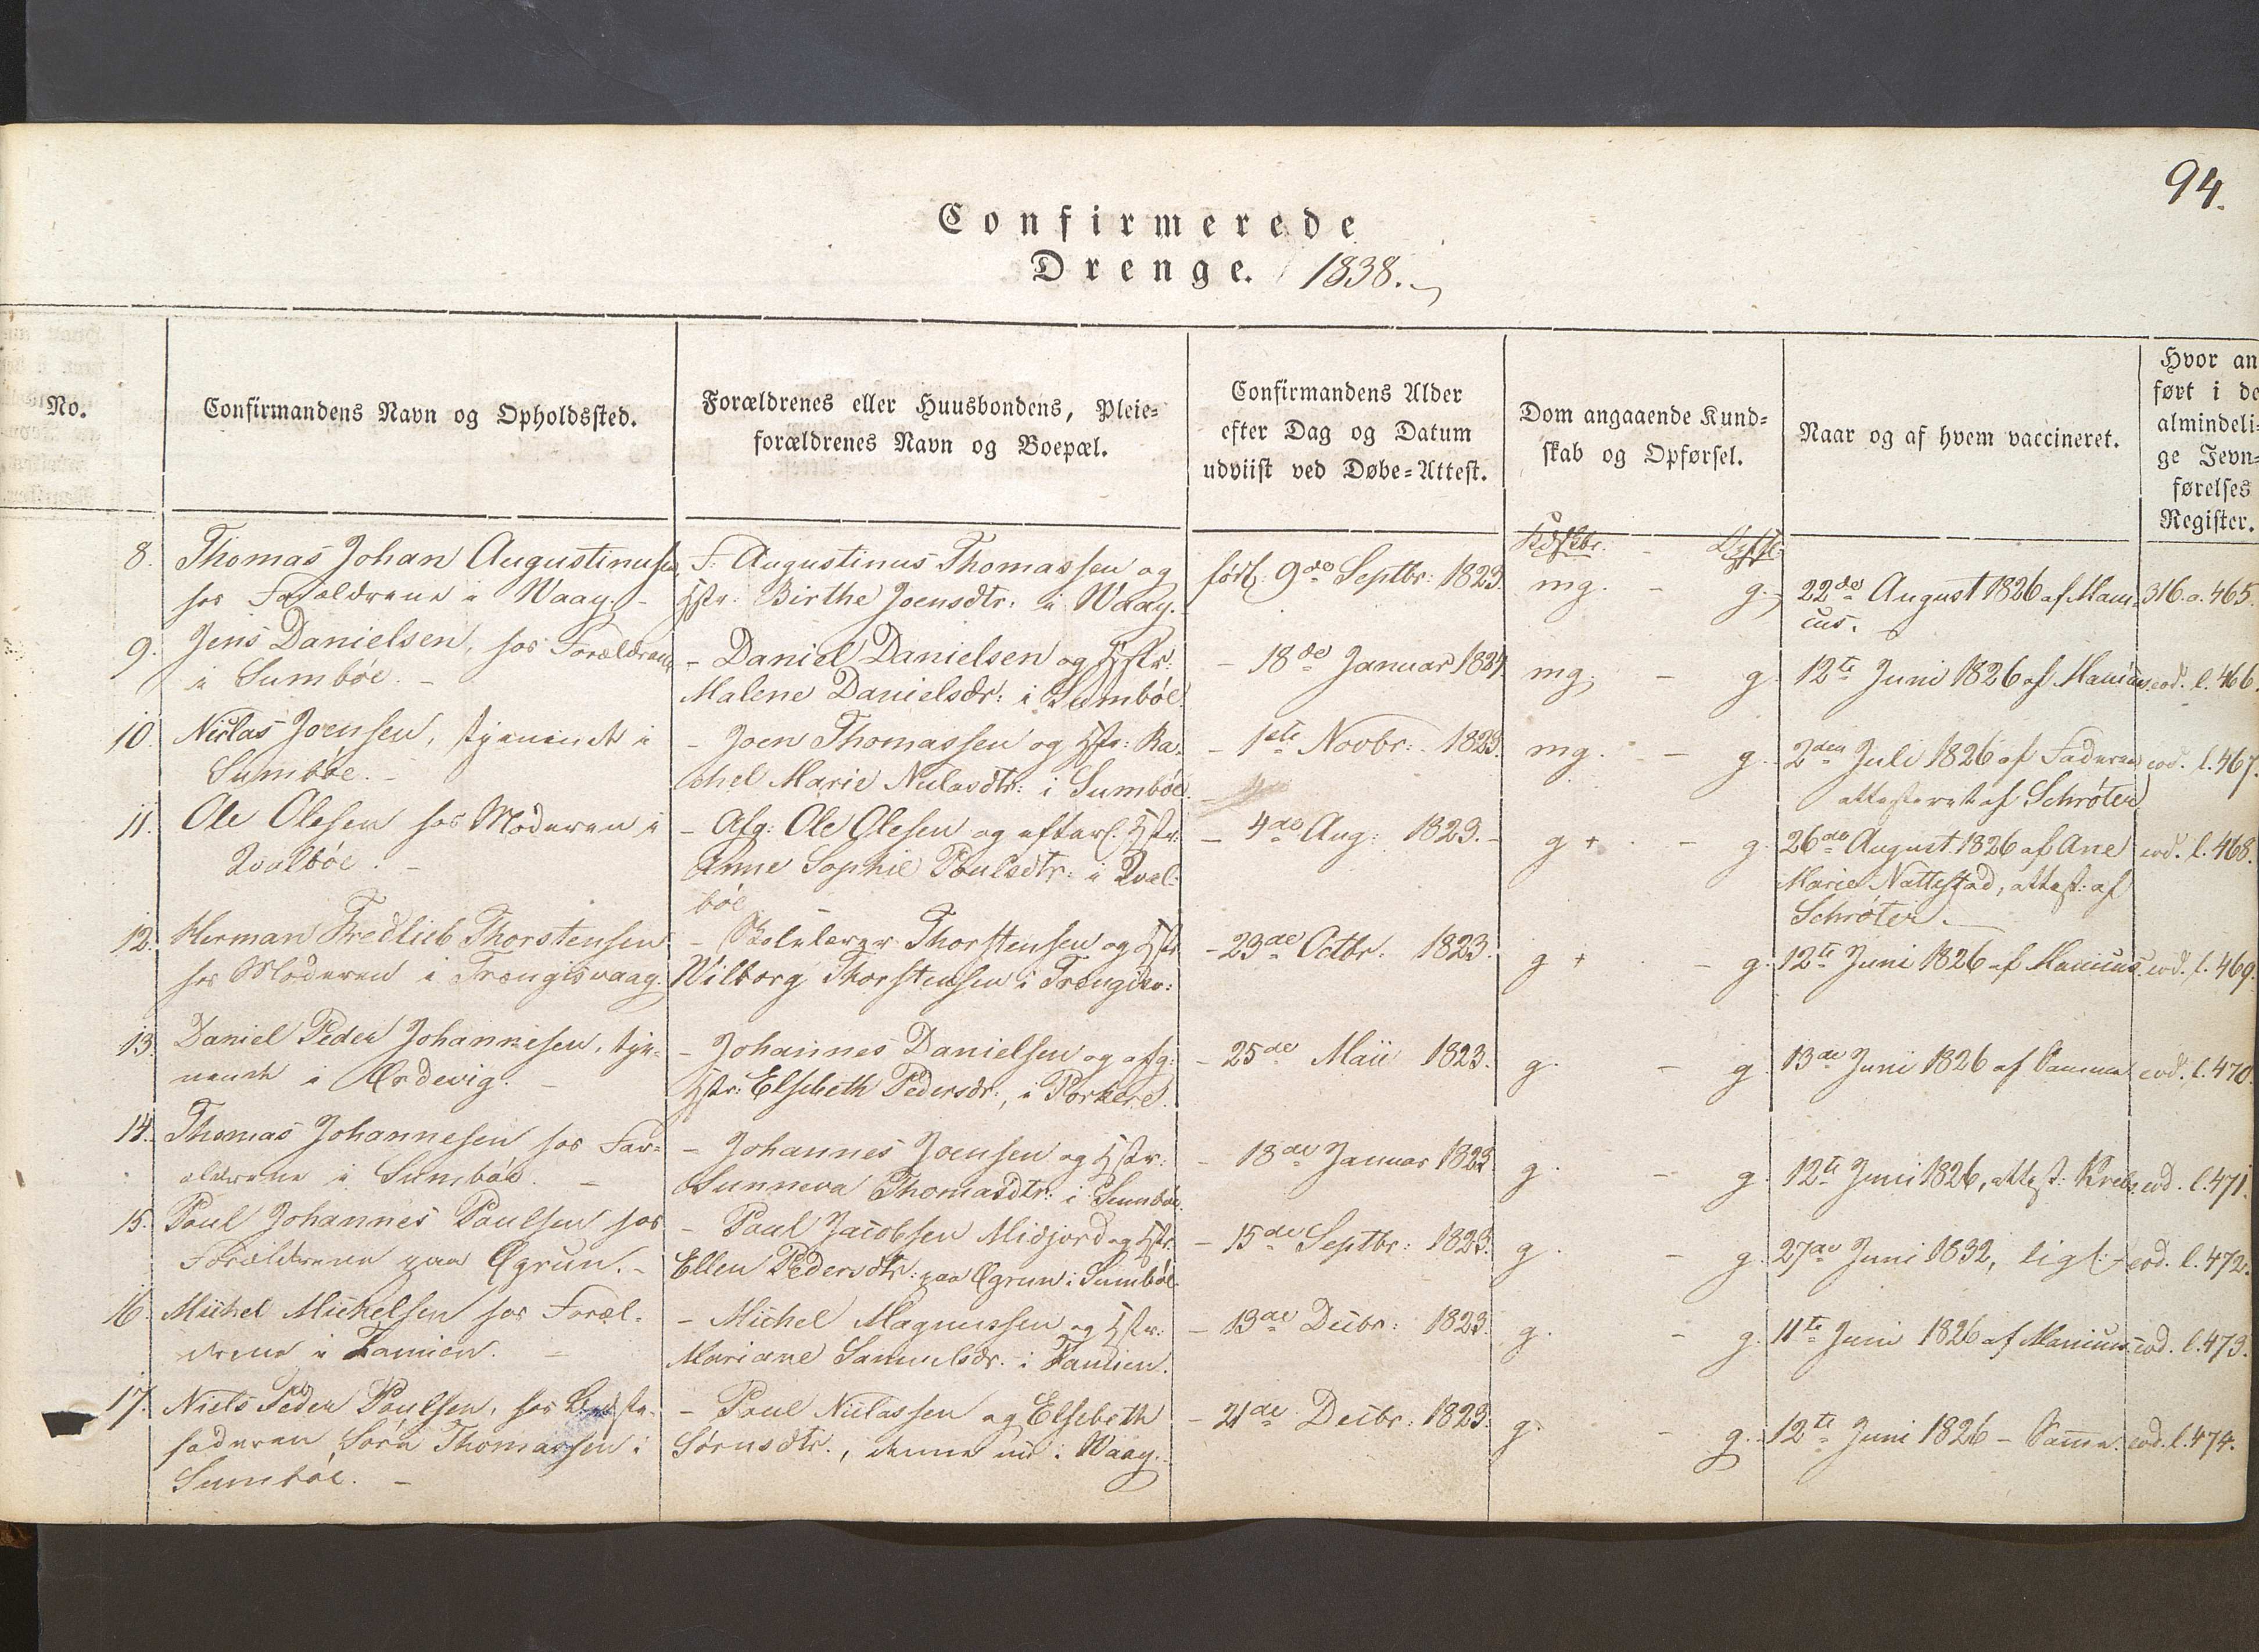 94.
Confirmerede
Drenge. 1838.
No.
Confirmandens Navn og Opholdssted.
Forældrenes eller Huusbondens, Pleie=
forældrenes Navn og Boepæl.
Confirmandens Alder
efter Dag og Datum
udviist ved Døbe=Attest.
Dom angaaende Kund=
skab og Opførsel.
Naar og af hvem vaccineret.
Hvor an
ført i de
almindeli=
ge Jevn=
førelses
Register.
Kdskbr. -
8. Thomas Johan Augustinusen
hos Forældrene i Waag. -
F: Augustinus Thomassen og
Hstr: Birthe Joensdtr: i Waag.
født 9de Septbr: 1823.
mg. - g.
22de August 1826 af Mani=
cus.
316. o. 465.
9. Jens Danielsen, hos Forældrene
i Sumbøe. -
- Daniel Danielsen og Hstr:
Malene Danielsdr: i Sumbøe.
- 18de Januar 1824.
mg. - g.
12te Juni 1826 af Manicus
eod. l. 466.
10. Niclas Joensen, tjenende i
Sumbøe. -
- Joen Thomassen og Hstr: Ra=
chel Marie Niclasdtr: i Sumbøe.
- 1ste Novbr: 1823.
mg. - g.
2den Juli 1826 af Faderen
attesteret af Schrøter
eod. l. 467.
11. Ole Olesen hos Moderen i
Qvalbøe. -
- Afg: Ole Olesen og efterl: Hstr:
Anne Sophie Poulsdtr: i Qval=
bøe
- 4de Aug: 1823. -
g + - g.
26de August 1826 af Ane
Marie Nattestad, attest: af
Schrøter.
eod. l. 468.
12. Herman Fredlieb Thorstensen
hos Moderen i Trængisvaag.
- Skolelærer Thorstensen og Hstr
Wilborg Thorstensen i Trængisv:
- 23de Octbr. 1823.
g + - g.
12te Juni 1826 af Manicus.
eod. l. 469.
13. Daniel Peder Johannesen, tje=
nende i Ørdevig. -
- Johannes Danielsen og afg:
Hstr: Elsebeth Pedersdr:, i Porkere.
- 25de Maii 1823.
g. - g.
13de Juni 1826 af Samme
eod. l. 470.
14. Thomas Johannesen hos For=
ældrene i Sumbøe. -
- Johannes Joensen og Hstr:
Sunneva Thomasdtr: i Sumbøe.
- 18de Januar 1823
g. - g.
12te Juni 1826, attest: Krebs
eod. l. 471.
15. Poul Johannes Poulsen hos
Forældrene paa Øgrun. -
- Poul Jacobsen Midjord og Hstr.
Ellen Pedersdtr: paa Øgrun i Sumbøe.
- 15de Septbr: 1823.
g. - g.
27de Juni 1832, ligl:
eod. l. 472.
16. Michel Michelsen hos Foræl=
drene i Famien. -
- Michel Magnussen og Hstr:
Mariane Samuelsdr. i Famien.
- 13de Decbr: 1823.
g. - g.
11te Juni 1826 af Manicus
eod. l. 473.
17. Niels Peder Poulsen, hos Bedste=
faderen Sørn Thomassen i
Sumbøe. -
- Poul Niclassen og Elsebeth
Sørnsdtr., denne nu i Waag.
- 21de Decbr: 1823.
g. - g.
12te Juni 1826 - Samme.
eod. l. 474.